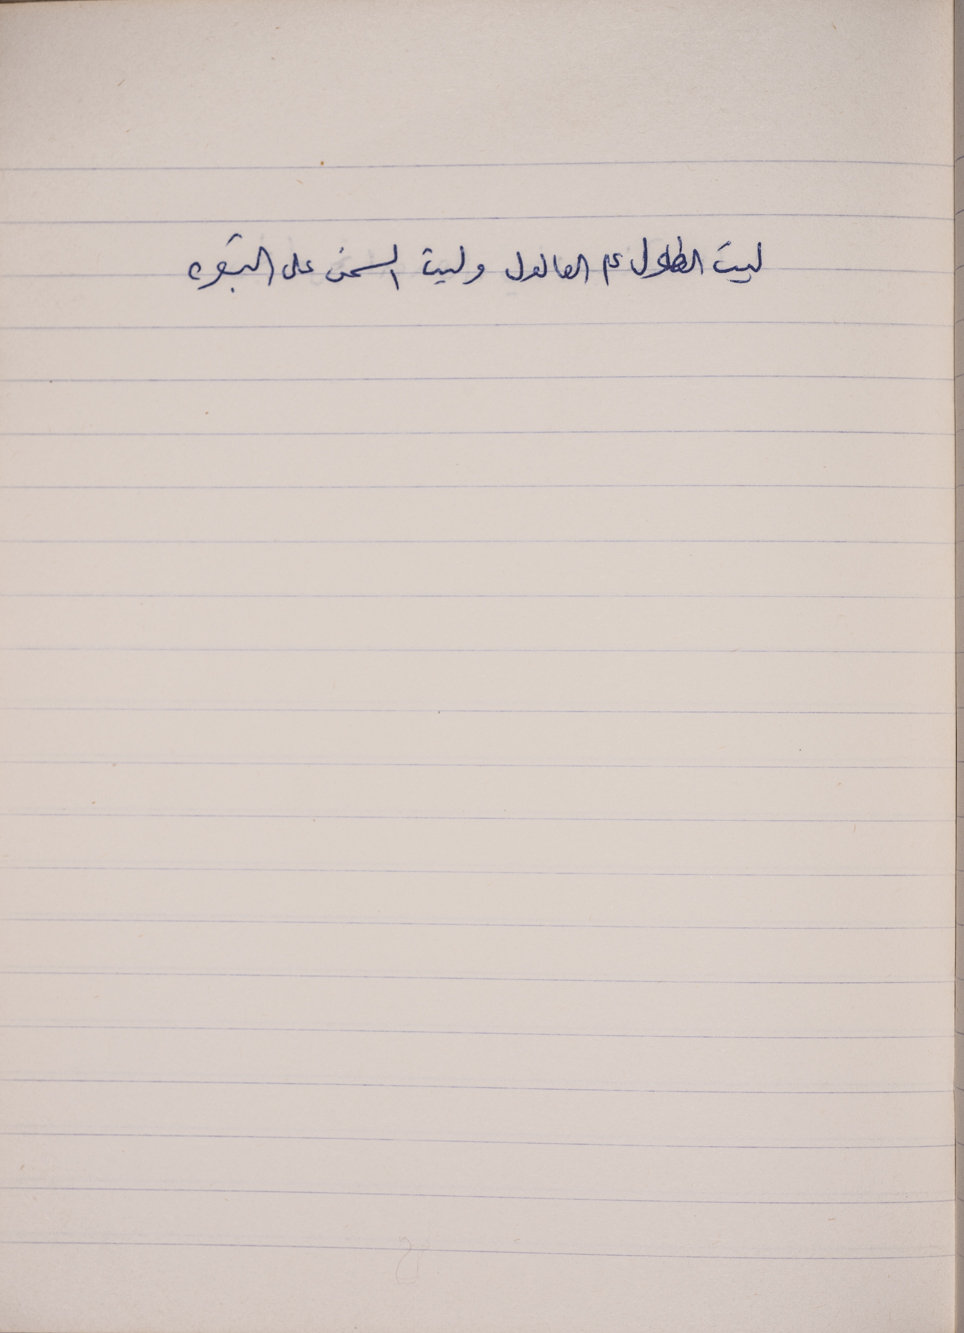 ليت الطلول عم العالول وليت السمن على البقره